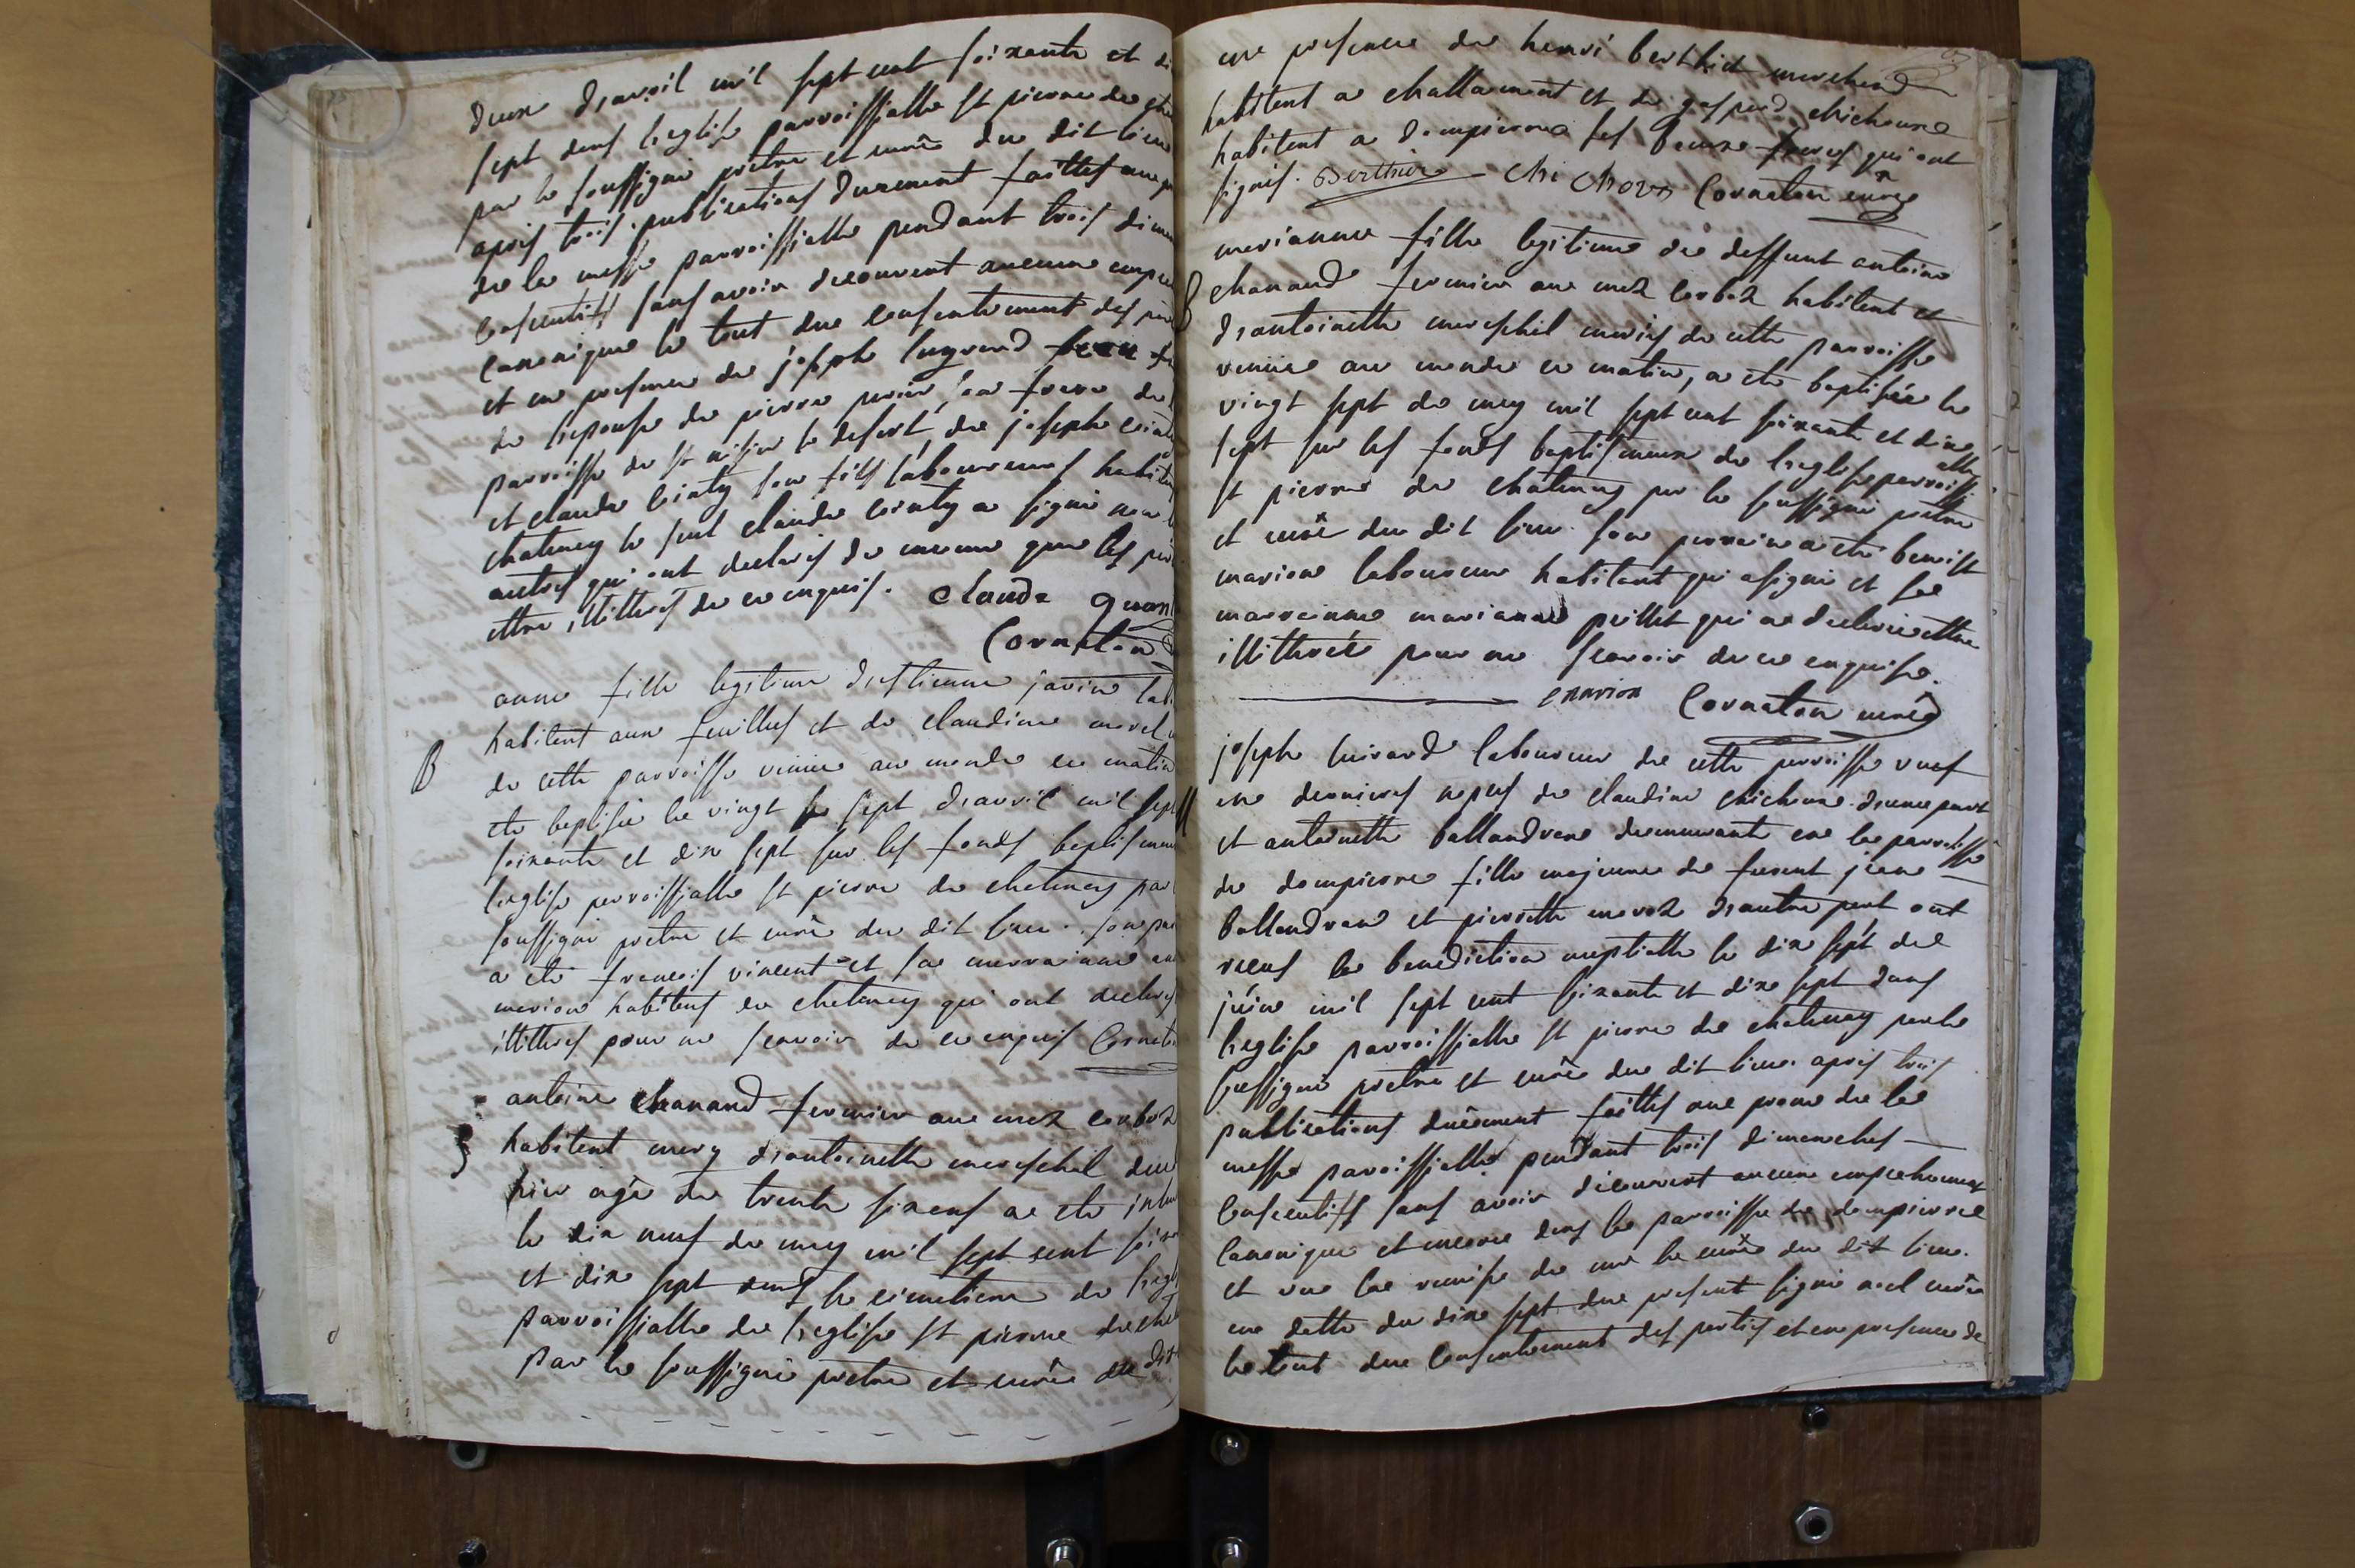 deux d'avril mil sept cent soixante et di
sept dans leglise parroissialle st pierre de cha
par le soussigné prêtre et curé du dit lieu
après trois publications duement faittes au p
de la messe parroissialle pendant trois diman
consecutifs sans avoir decouvert aucune empe
canonique le tout du consentement des par
et en presence de joseph
de lepouse de pierre son frere de
parroisse de st nisier le desert, de joseph
et claude son fils laboureurs habit
chatenay le seul claude a signé non l
autres qui ont declarés de meme que les
ettre illitterés de ce enquis. claude
Cornaton
anne fille legitime d'estienne lab
habitent aux feuilles et de claudine morel
B de cette parroisse venüe au monde ce matin
eté baptisée le vingt sept d'avril mil sept
soixante et dix sept sur les fonds baptismau
leglise parroissialle st pierre de chatenay par
soussigné prêtre et curé du dit lieu. son par
a eté francois vincent et sa marrainne
marion habitens a chatenay qui ont declares
illitterés pour ne scavoir de ce enquis Cornat
antoine chanand fermier au mas corbet
habitent mary d'antoinette mareschil
hier agé de trente six ans a eté inhu
le dix neuf de may mil sept cent soix
et dix sept dans le cimetiere de leg
parroissialle de leglise st pierre de cha
par le soussigné prêtre et curé du dit
en presence de henri berthiet marchand
habitent a challamont et de gaspard chichoux
habitent a dompierre ses beaux freres qui ont
signés. Berthier chichoux Cornaton curé
marianne fille legitime de deffunt antoine
B chanand fermier au mas corbet habitent et
d'antoinette mareschil mariés de cette parroisse
venüe au monde ce matin, a eté baptisée le
vingt sept de may mil sept cent soixante et dix
sept sur les fonds baptismaux de leglise parroissi
alle
st pierre de chatenay par le soussigné prêtre
et curé du dit lieu. son parrein a eté benoist
marion laboureur habitant qui a signé et sa
marreinne marianne peillet qui a declaré ettre
illitterée pour ne scavoir de ce enquise.
b marion Cornaton curé
joseph laboureur de cette parroisse veuf
en dernieres nopces de claudine chichoux d'une part
et antoinette ballandran demeurante en la parroisse
de dompierre fille majeure de furent jean
ballandran et pierrette d'autre part ont
receus la benediction nuptialle le dix sept de
juin mil sept cent soixante et dix sept dans
leglise parroissialle st pierre de chatenay par le
soussigné prêtre et curé du dit lieu. après trois
publications duëment faittes au prone de la
messe paroissialle pendant trois dimanches
consecutifs sans avoir decouvert aucun empechement
canonique et meme dans la parroisse de dompierre
et vue la remise de mr le curé du dit lieu.
en datte du dix sept du present signé curé
le tout du consentement des partie et en presence de